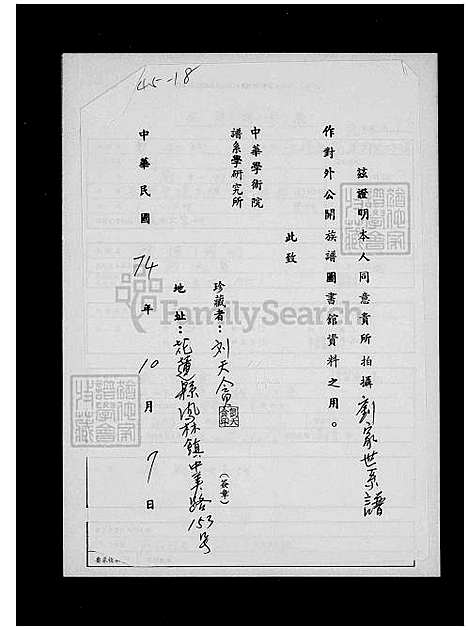 45-18
茲證明本人同意貴所拍攝劉家世系譜
作對外公開族譜圖書館資料之用。
此致
中華學術院
譜系學研究所
珍藏者：刘天(簽章)
地址：花蓮縣鳳林鎮中美路153号
中華民國74年10月7日
FamilySearch